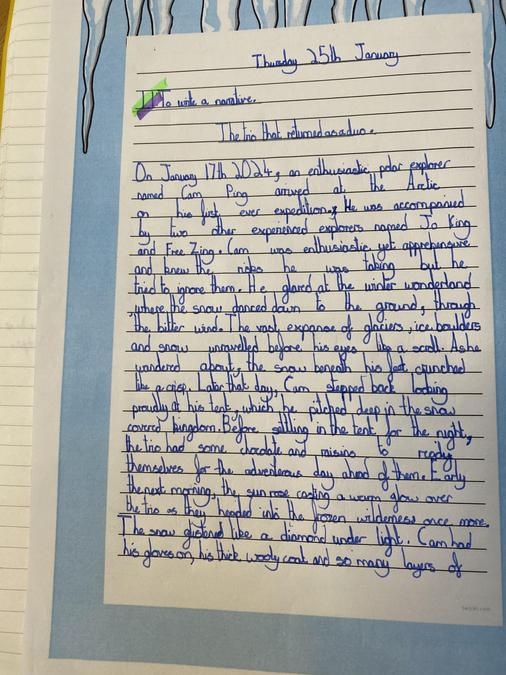 Thursday 25th January
To write a narrative.
The trio that returned as a duo.
On January 17th 2024, an enthusiastic polar explorer
named Cam Ping arrived at the Arctic
on his first ever expedition. He was accompanied
by two other experienced explorers named Jo King
and Free Zing. Cam was enthusiastic yet apprehensive
and knew the risks he was taking but he
tried to ignore them. He glared at the winter wonderland
, where the snow danced down to the ground, through
the bitter wind. The vast expanse of glaciers, ice boulders
and snow unravelled before his eyes like a scroll. As he
wandered about, the snow beneath his feet crunched
like a crisp. Later that day, Cam stepped back looking
proudly at his tent, which he pitched deep in the snow
covered kingdom. Before settling in the tent for the night,
the trio had some chocolate and raisins to ready
themselves for the adventerous day ahead of them. Early
the next morning, the sun rose casting a warm glow over
the trio as they headed into the frozen wilderness once more.
The snow glistened like a diamond under light. Cam had
his gloves on, his thick wooly coat and so many layers of